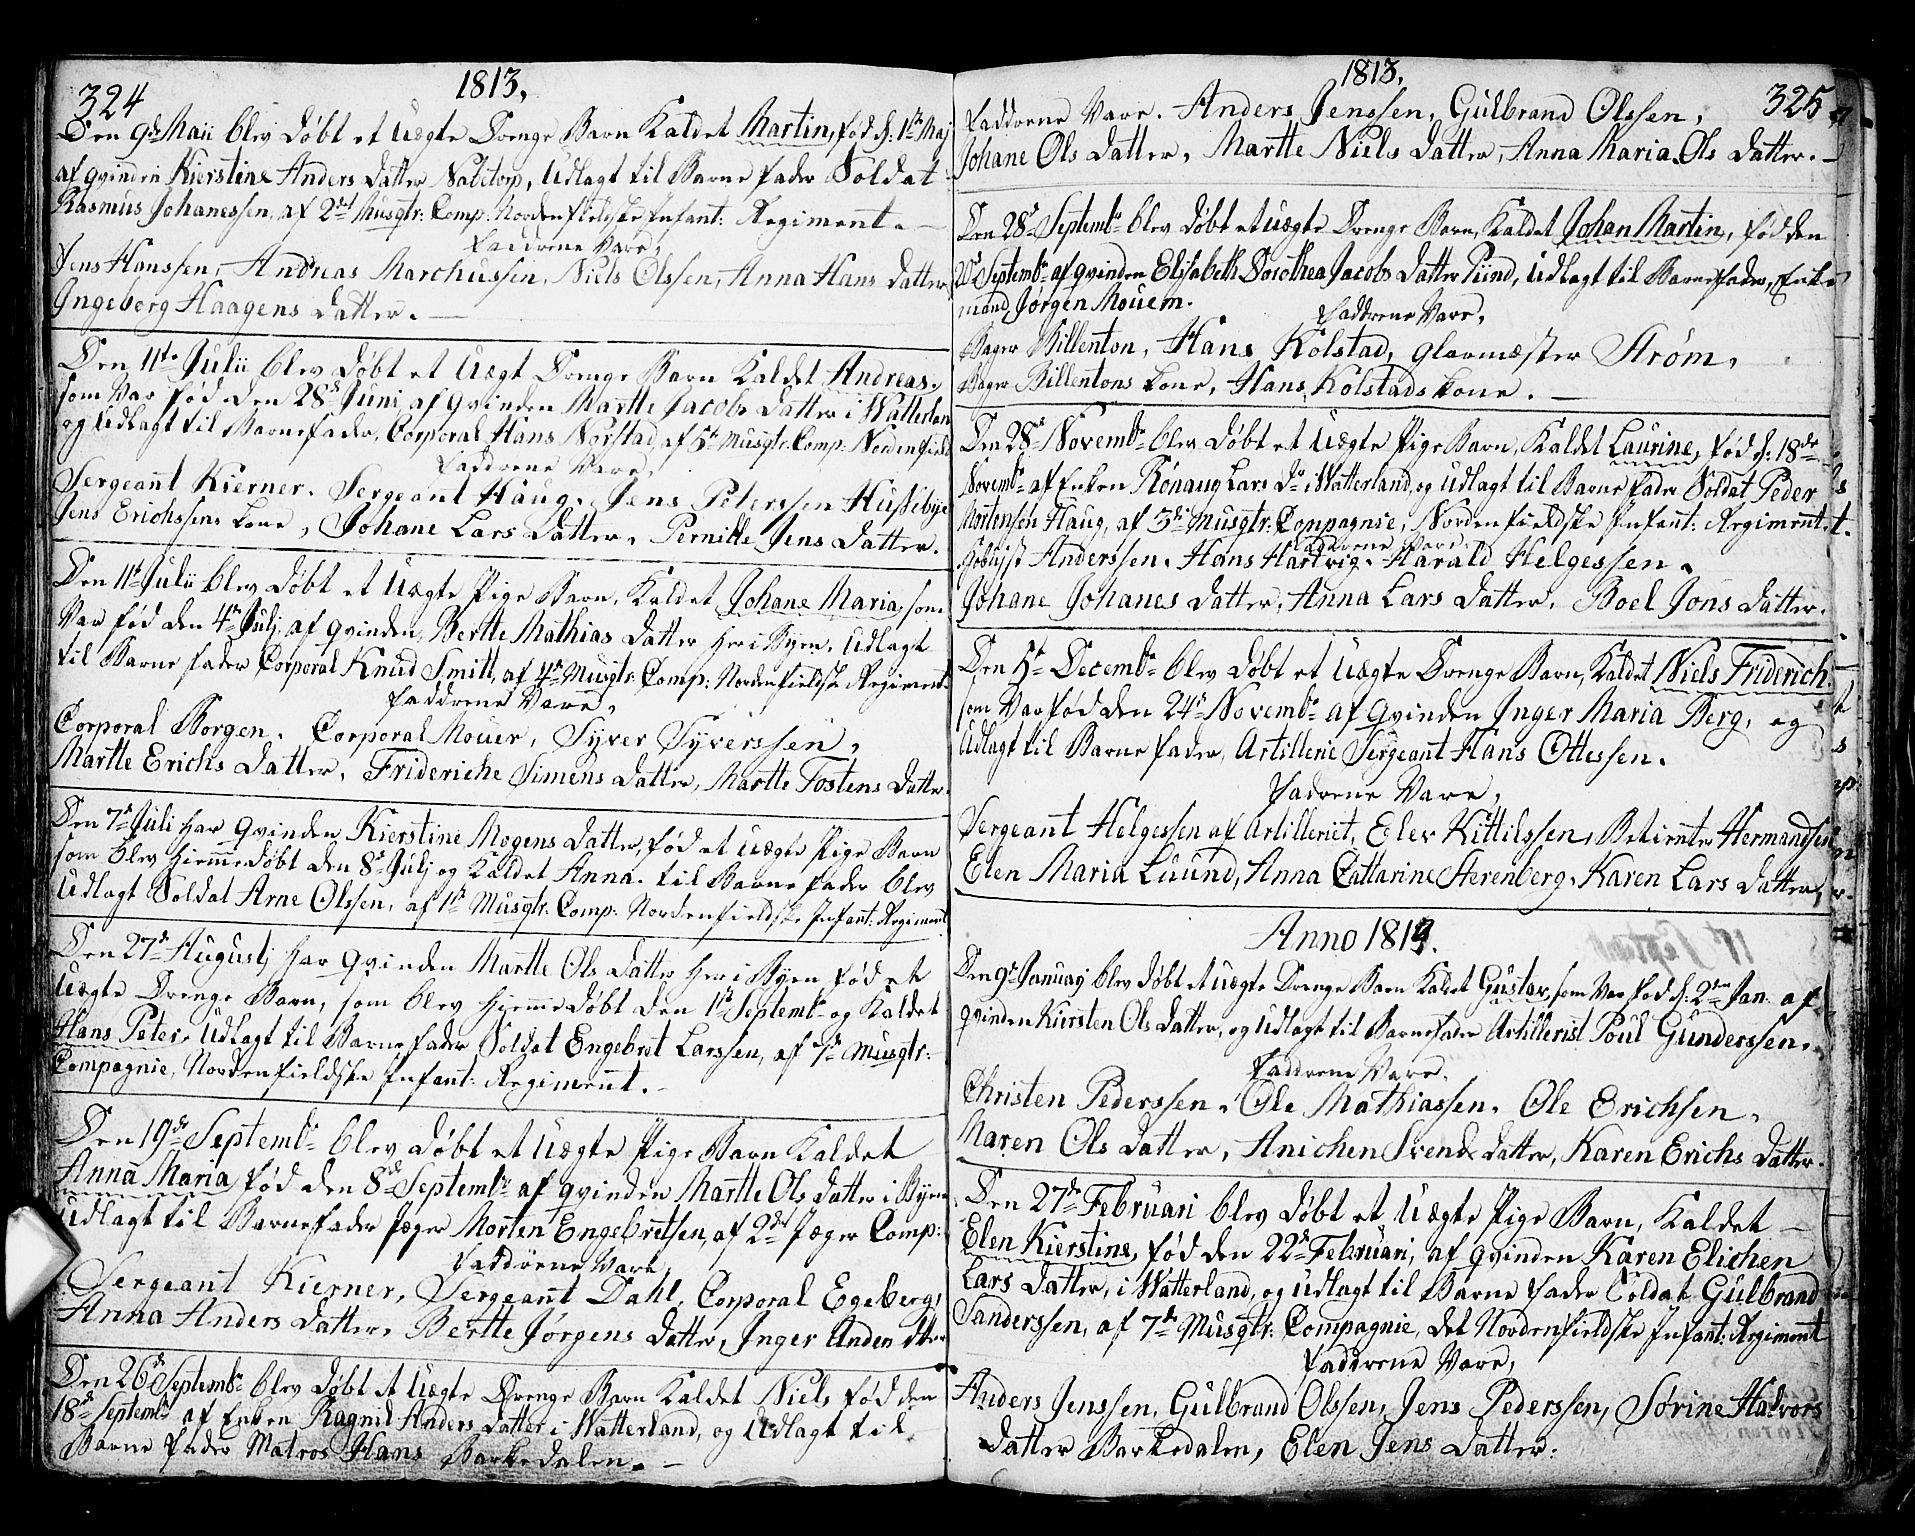 324
1813,
Den 9de Maii blev døbt et uægte Drenge Barn Kaldet Martin, fød d: 1ste Maj
af qvinden Kierstine Anders Datter, udlagt til Barne fader Soldat
Rasmus Johanessen, af 2det Musqtr: Comp: Nordenfieldske Infant: Regiment. —
Faddrene Vare,
Jens Hanssen, Andreas Marchussen, Niels Olssen, Anna Hans Datter,
Ingeborg Haagens Datter. —
Den 11te Julii blev døbt et uægt Drenge Barn Kaldet Andreas,
som Var fød den 28de Juni af qvinden Marthe Jacobs Datter i Watterland
og udlagt til Barnefader, Corporal Hans Norstad af 5te Musqtr: Comp: Nordenfield
Faddrene Vare,
Sergeant Kierner. Sergeant Haug. Jens Peterssen Hussebye
Jens Erichssens kone, Johane Lars Datter, Pernille Jens Datter.
Den 11te Julii blev døbt et uægte Pige Barn, Kaldet Johane Maria, som
Var fød den 4de Julj af qvinden, Berthe Mathias Datter her i Byen, udlagt
til Barne fader Corporal Knud Smitt, af 4de Musqtr: Comp: Nordenfieldske Regiment.
Faddrene Vare,
Corporal Borgen. Corporal Mouer, Syver Syverssen,
Marthe Erichs Datter, Frideriche Simens Datter, Marthe Tostens Datter.
Den 7de Juli har qvinden Kierstine Mogens Datter, fød et uægte Pige Barn
som blev hiemmedøbt den 8de Julj og Kaldet Anna. til Barne fader blev
udlagt Soldat Arne Olssen, af 1ste Musqtr: Comp: Nordenfieldske Infant: Regiment
Den 27de Augustj har qvinden Marthe Ols Datter her i Byen fød et
uægte Drenge Barn, som blev hiemmedøbt den 11te Septembr og Kaldet
Hans Peter, udlagt til Barnefader Soldat Engebret Larssen, af 7de Musqtr:
Compagnie, Nordenfieldske Infant: Regiment. —
Den 19de Septembr blev døbt et uægte Pige Barn Kaldet
Anna Maria, fød den 8de Septembr af qvinden Marthe Ols Datter i Byen
udlagt til Barnefader Jæger Morten Engebretsen, af 2det Jæger Comp:
Faddrene Vare,
Sergeant Kierner, Sergeant Dahl, Corporal Egeberg,
Anna Anders Datter, Berthe Jørgens Datter, Inger Anders dtter
Den 26de Septembr blev døbt et uægte Drenge Barn Kaldet Niels fød den
18de Septembr af Enken Ragnil Anders Datter i Watterland, og udlagt til
Barne fader Matros Hans Barkedalen. —
1813,
325
Faddrene Vare. Anders Jenssen, Gulbrand Olssen,
Johane Ols Datter, Marthe Niels Datter, Anna Maria Ols Datter. —
Den 28de Septembr blev døbt et uægte Drenge Barn, Kaldet Johan Martin, fød den
Septembr af qvinden Elisabeth Dorothea Jacobs Datter Lund, udlagt til Barnefader, Enke
mand Jørgen Mouem.
Faddrene Vare,
Bager Billenton, Hans Kolstad, Glarmæster Strøm,
Bager Billentons kone, Hans Kolstads kone. —
Den 28de Novembr blev døbt et uægte Pige Barn, Kaldet Laurine, fød d: 18de
Novembr af Enken Rønaug Lars Dr i Watterland, og udlagt til Barne fader Soldat Peder
Mortensen Haug, af 3de Musqtr: Compagnie, Nordenfieldske Infant: Regiment.
Faddrene Vare,
Anderssen. Hans Hartvig. Harald Helgessen.
Johane Johanes Datter, Anna Lars Datter. Boel Jons Datter.
Den 5te Decembr blev døbt et uægte Drenge Barn, Kaldet Niels Friderich
som Var fød den 24de Novembr af qvinden Inger Maria Berg, og
udlagt til Barne fader, Artillerie Sergeant Hans Ottessen.
Fadrene Vare,
Sergeant Helgessen af Artilleriet, Elev Kittilssen, Betienter Hermandsen
Elen Maria Luund, Anna Cattarine Sterenberg, Karen Lars Datter,
Anno 1814.
Den 9de Januarj blev døbt et uægte Drenge Barn Kaldet Gustav, som Var fød d: 2den Jan: af
qvinden Kirsten Ols Datter, og udlagt til Barnefader Artillerist Poul Gunderssen.
Faddrene Vare.
Christen Pederssen, Ole Mathiassen. Ole Erichsen,
Maren Ols Datter, Anichen Svends Datter, Karen Erichs Datter.
Den 27de Februari blev døbt et uægte Pige Barn, Kaldet —
Elen Kierstine, fød den 22de Februari, af qvinden Karen Elichen
Lars Datter, i Watterland, og udlagt til Barne fader Soldat Gulbrand
Sanderssen, af 7de Musqtr: Compagnie, det Nordenfieldske Infant: Regiment
Faddrene Vare,
Anders Jenssen, Gulbrand Olssen, Jens Pederssen, Sørine Halvors
Datter Barkedalen, Elen Jens Datter.